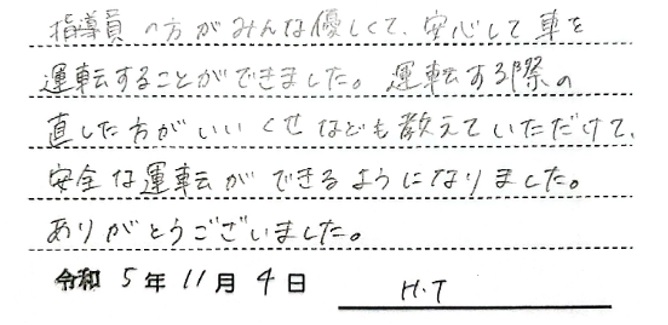 指導員の方がみんな優しくて、安心して車を
運転することができました。運転する際の
直した方がいいくせなども教えていただけて、
安全な運転ができるようになりました。
ありがとうございました。
令和5年11月4日 H.T